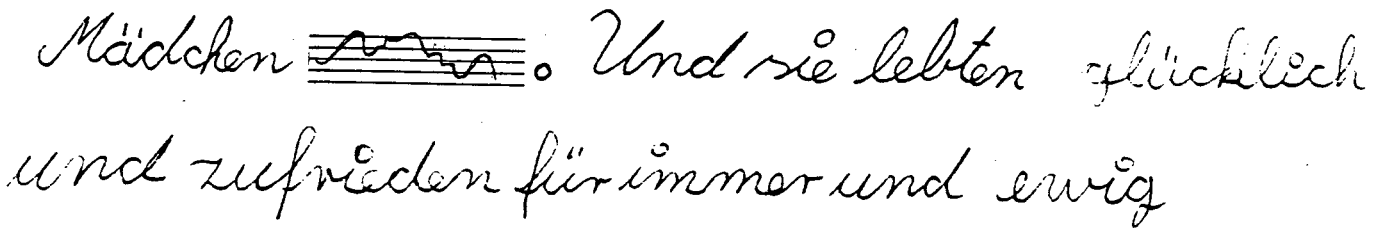 Mädchen . Und sie lebten glücklich
und zufrieden für immer und ewig